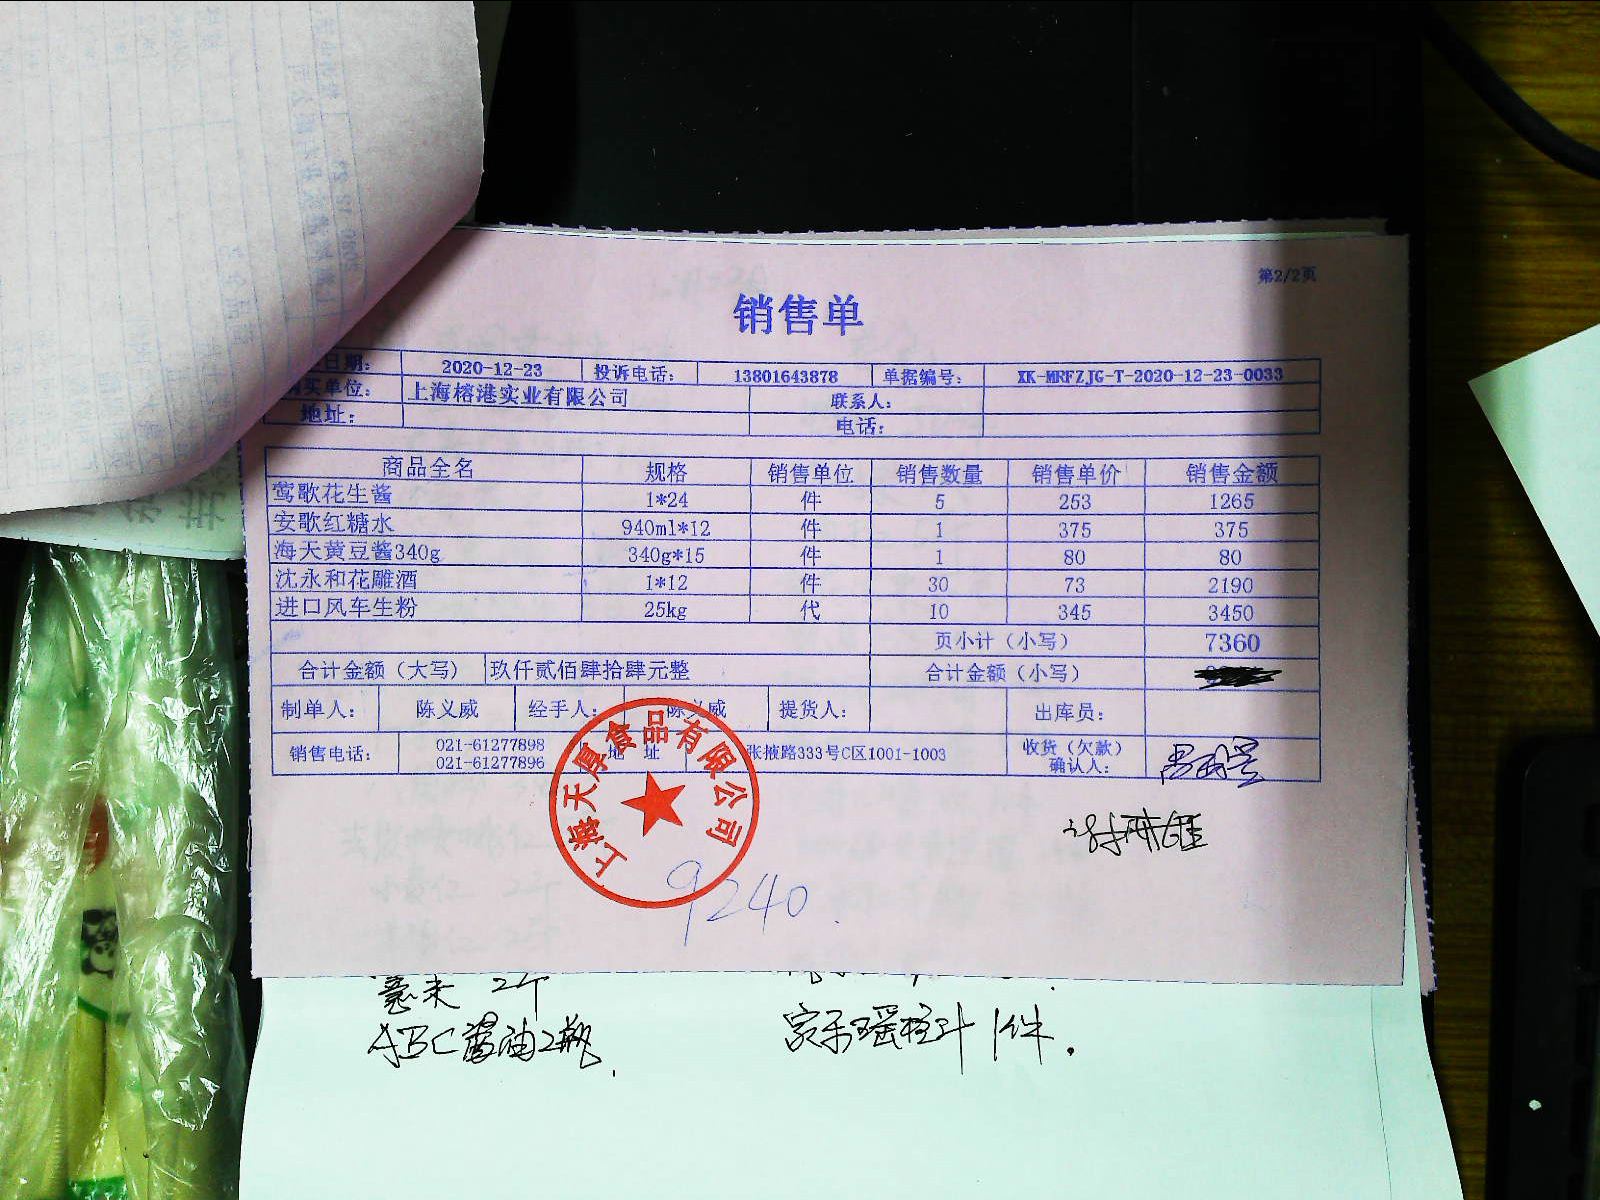 第2/2页
销售单
日期： 2020-12-23 投诉电话： 13801643878 单据编号： XK-MRFZJG-T-2020-12-23-0033
购买单位： 上海榕港实业有限公司 联系人：
地址： 电话：
商品全名 规格 销售单位 销售数量 销售单价 销售金额
莺歌花生酱 1*24 件 5 253 1265
安歌红糖水 940ml*12 件 1 375 375
海天黄豆酱340g 340g*15 件 1 80 80
沈永和花雕酒 1*12 件 30 73 2190
进口风车生粉 25kg 代 10 345 3450
页小计（小写） 7360
合计金额（大写） 玖仟贰佰肆拾肆元整 合计金额（小写）
制单人： 陈义威 经手人： 陈义威 提货人： 出库员：
销售电话： 021-61277898 地 址 张掖路333号C区1001-1003 收货（欠款）
021-61277896 确认人：
上海天厚食品有限公司
9240.
薏米 2斤
ABC酱油2瓶. 家乐瑶柱汁1件.